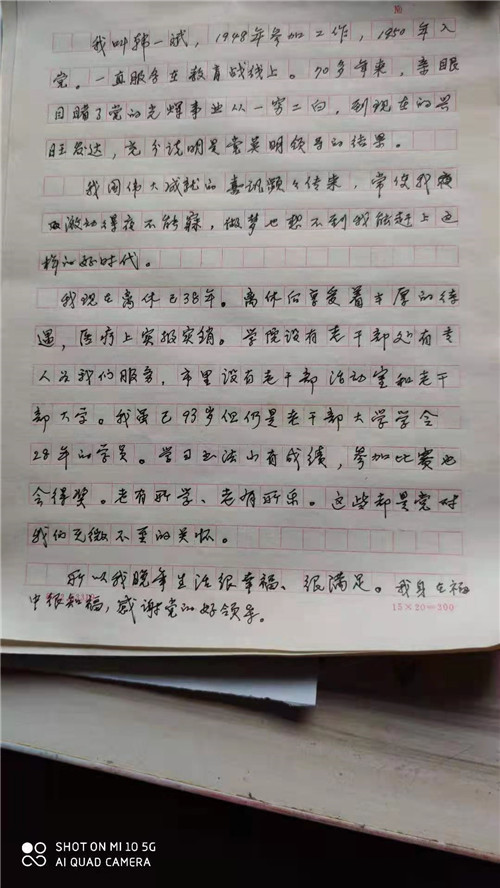 我叫韩一斌，1948年参加工作，1950年入
党。一直服务在教育战线上。70多年来，亲眼
目睹了党的光辉事业从一穷二白，到现在的兴
旺发达，充分说明是党英明领导的结果。
我国伟大成就的喜讯频々传来，常使我夜
激动得夜不能寐，做梦也想不到我能赶上这
样的好时代。
我现在离休已38年。离休后享受着丰厚的待
遇，医疗上实报实销。学院设有老干部处有专
人为我们服务，市里设有老干部活动室和老干
部大学。我虽已93岁但仍是老干部大学学会
28年的学员。学习书法小有成绩，参加比赛也
会得奖。老有所学、老有所乐。这些都是党对
我们无微不至的关怀。
所以我晚年生活很幸福、很满足。我身在福
中很知福，感谢党的好领导。
15×20=300
SHOT ON MI 10 5G
AI QUAD CAMERA